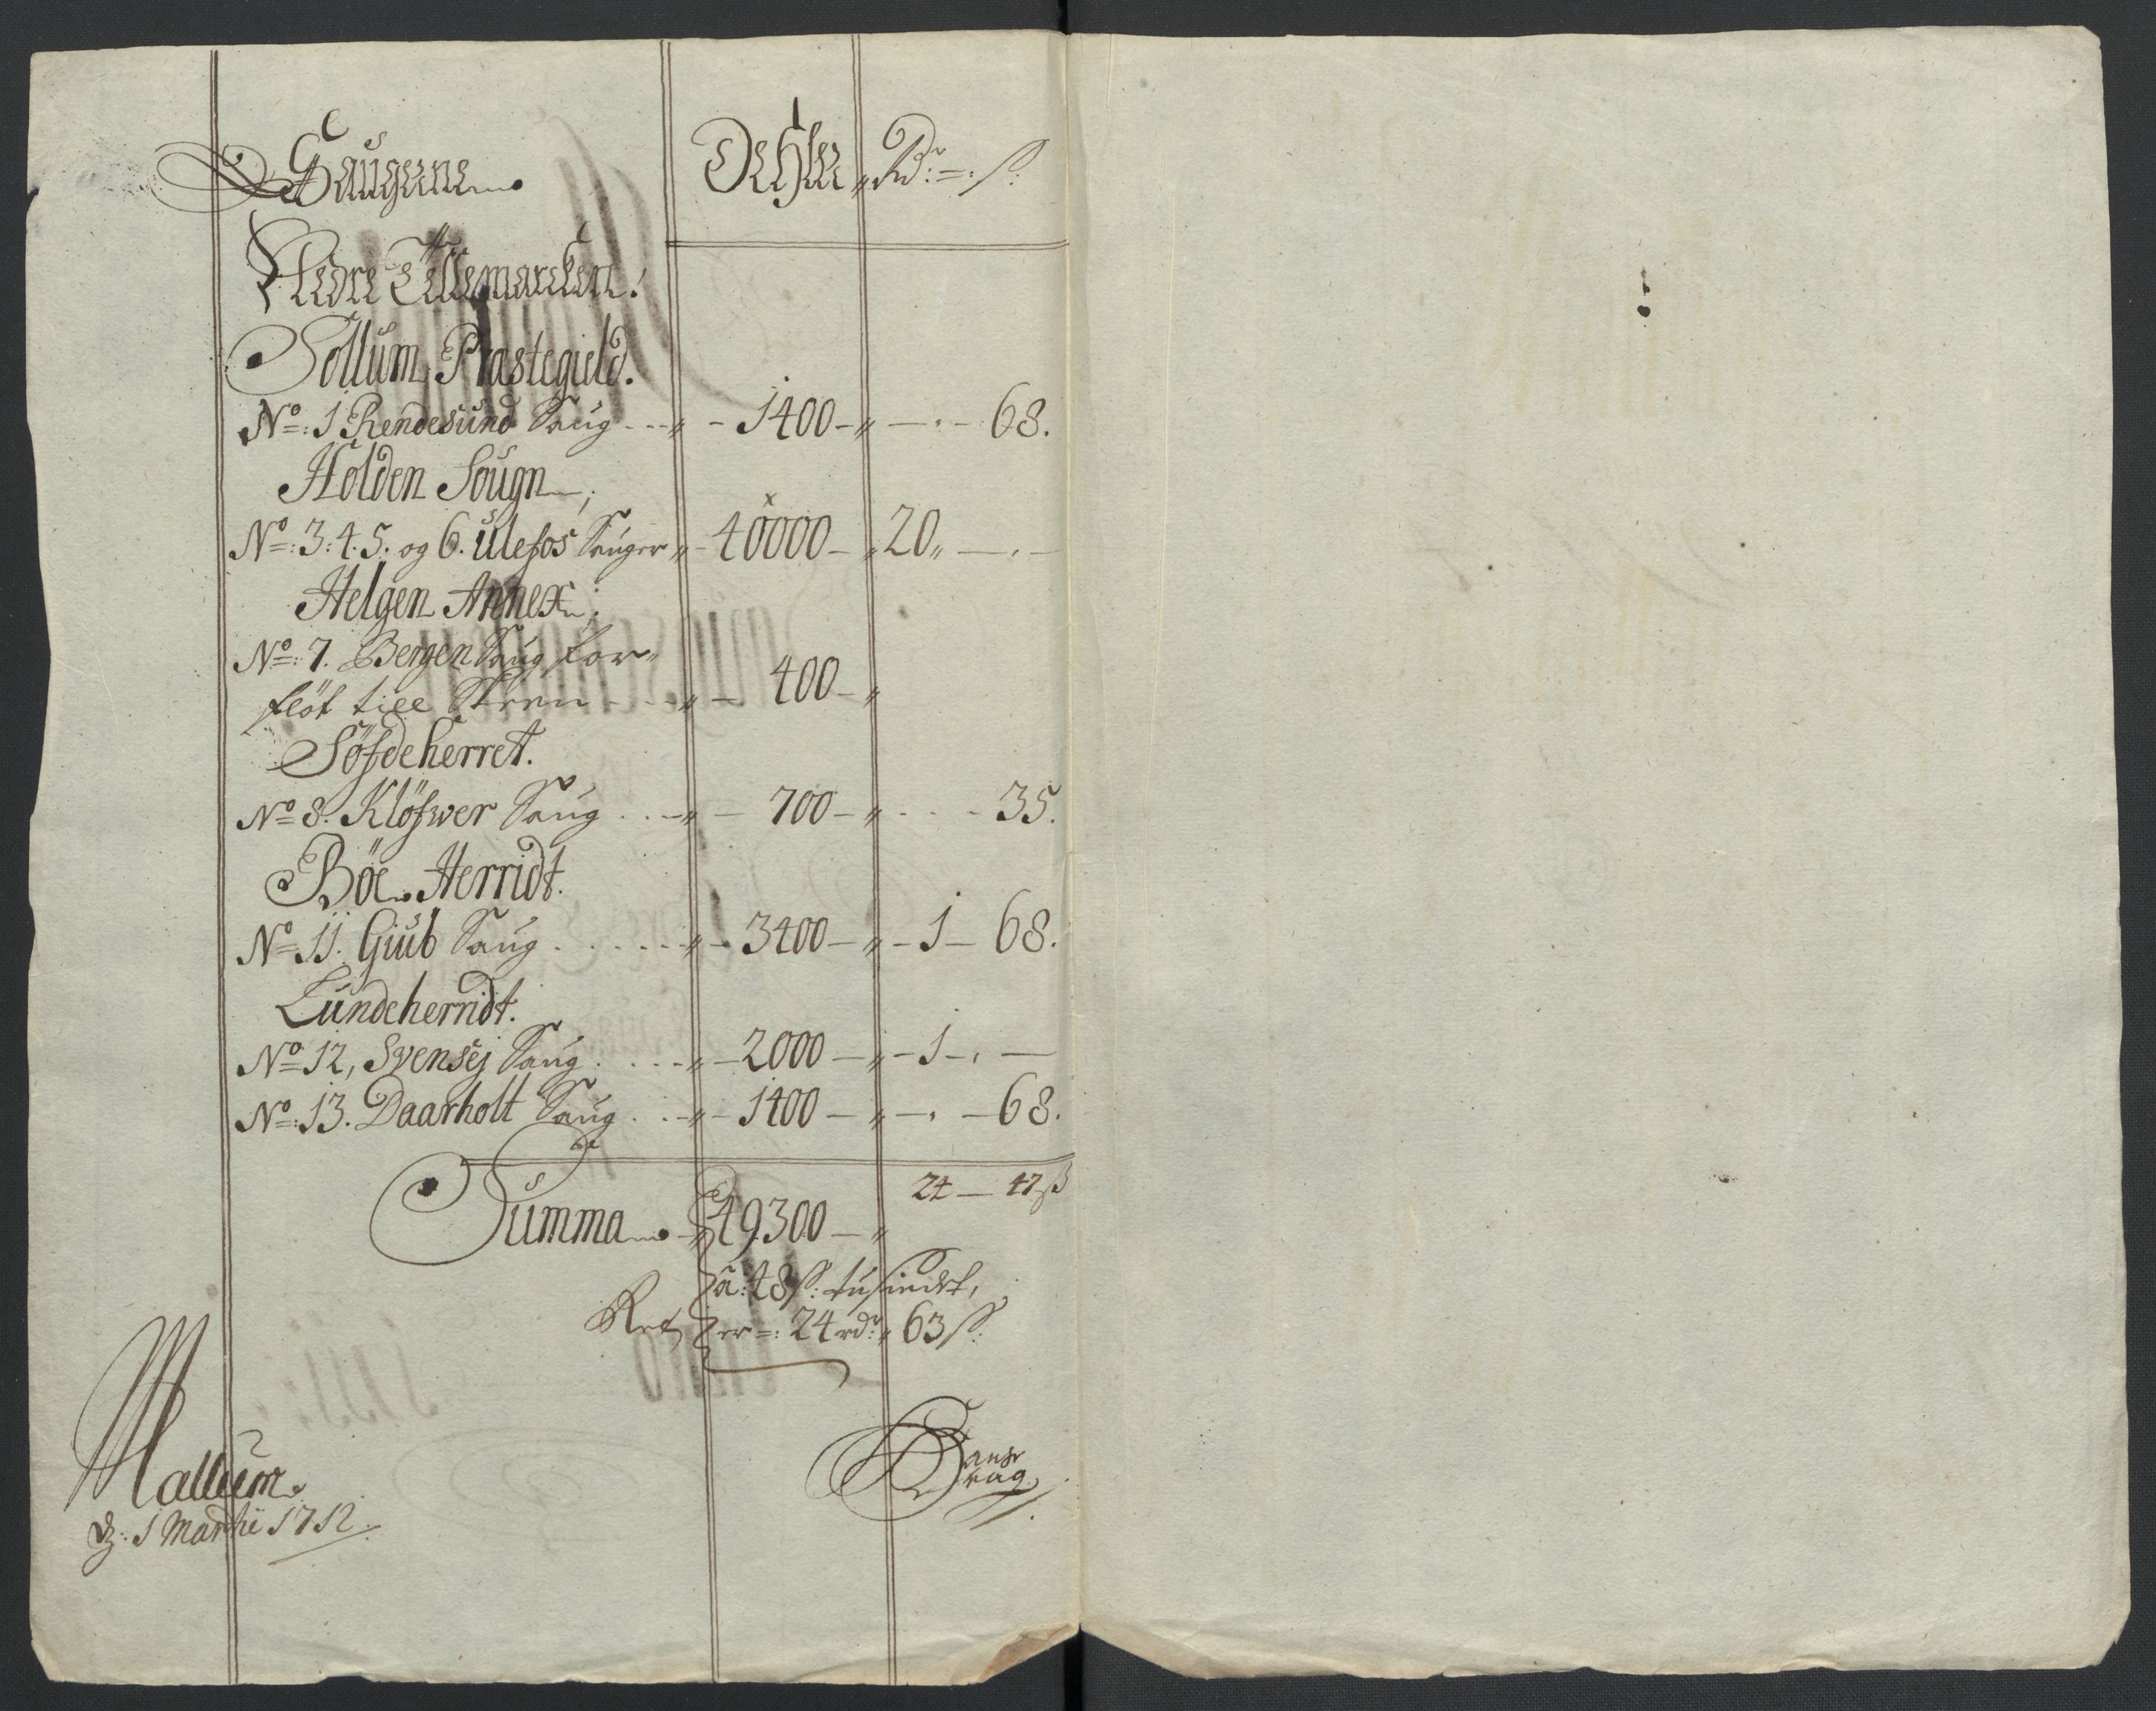 Saugene Dehler Rdr: s:
Nedre Tellemarcken:
Sollum Præstegield.
No: 1 Rendesund Saug - 1400 - 68.
Holden Sougn
No: 3: 4. 5. og 6. Ulefos Sauger 40000 - 20
Helgen Annex
No: 7. Bergen Saug for-
fløt till Skeen 400
Søfdeherret.
No 8. Kløfwer Saug 700 - 35.
Böe Herridt.
No 11. Giub Saug 3400 - 1 - 68.
Lundeherridt.
No 12, Svensej Saug 2000 - 1
No: 13. Daarholt Saug 1400 - 68.
24 - 47 s
Summa 49300
a: 48 s: tusindet,
Ret er =: 24 rdr: 63 s:
Hallum
d: 1 Martii 1712.